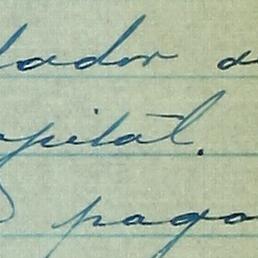 lador d
pital.
pago